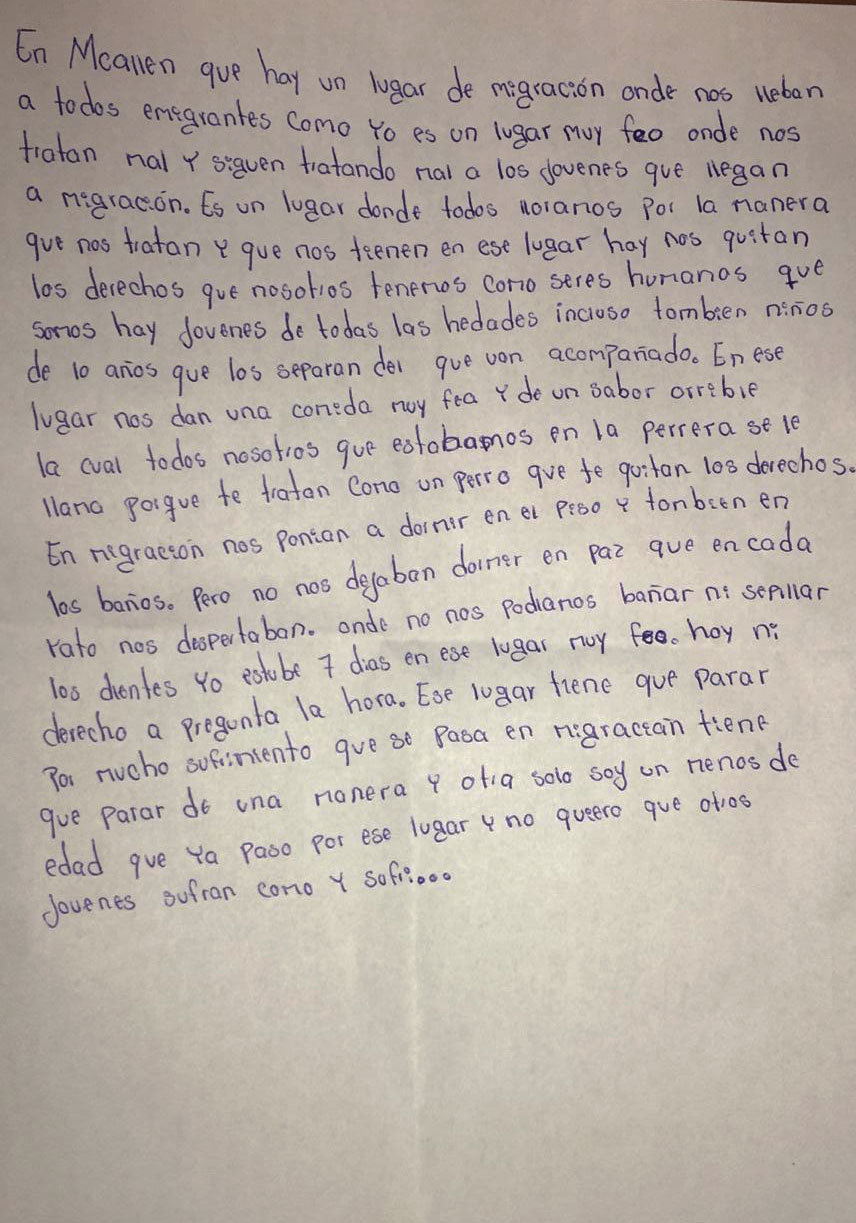 En Mcallen que hay un lugar de migración onde nos lleban
a todos emigrantes como Yo es un lugar muy feo onde nos
tratan mal Y siguen tratando mal a los Jovenes que llegan
a migración. Es un lugar donde todos lloramos Por la manera
que nos tratan Y que nos tienen en ese lugar hay nos quitan
los derechos que nosotros tenemos como seres humanos que
somos hay Jovenes de todas las hedades incluso tombien niños
de 10 años que los separan del que von acompañado. En ese
lugar nos dan una comida muy fea Y de un sabor orrible
la cual todos nosotros que estobamos en la perrera se le
llama porque te tratan Como un Perro que te quitan los derechos.
En migración nos Ponian a dormir en el Piso Y tonbien en
los baños. Pero no nos dejaban dormir en Paz que en cada
rato nos despertaban. onde no nos Podiamos bañar ni sepillar
los dientes Yo estube 7 dias en ese lugar muy feo. hay ni
derecho a Pregunta la hora. Ese lugar tiene que Parar
Por mucho sufrimiento que se Pasa en migracian tiene
que Parar de una manera Y otra solo soy un menos de
edad que Ya Paso Por ese lugar Y no quiero que otros
Jovenes sufran como Y sofri...